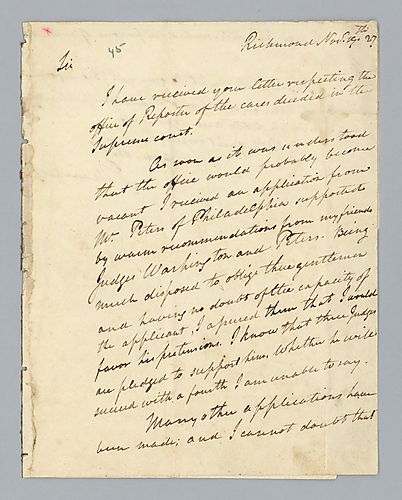 Richmond Novr. 9th. 27
45
Sir
I have received your letter respecting the
office of Reporter of the cases decided in the
Supreme court.
As soon as it was understood
that the office would probably become
vacant I received an application from
Mr. Peters of Philadelphia supported
by warm recommendations from my friends
Judges Washington and Peters. Being
much disposed to oblige these gentlemen
and having no doubt of the capacity of
the applicant, I assured them that I would
favor his pretensions. I know that three Judges
are pledged to support him. Whether he will
succeed with a fourth I am unable to say.
Many other applications have
been made; and I cannot doubt that